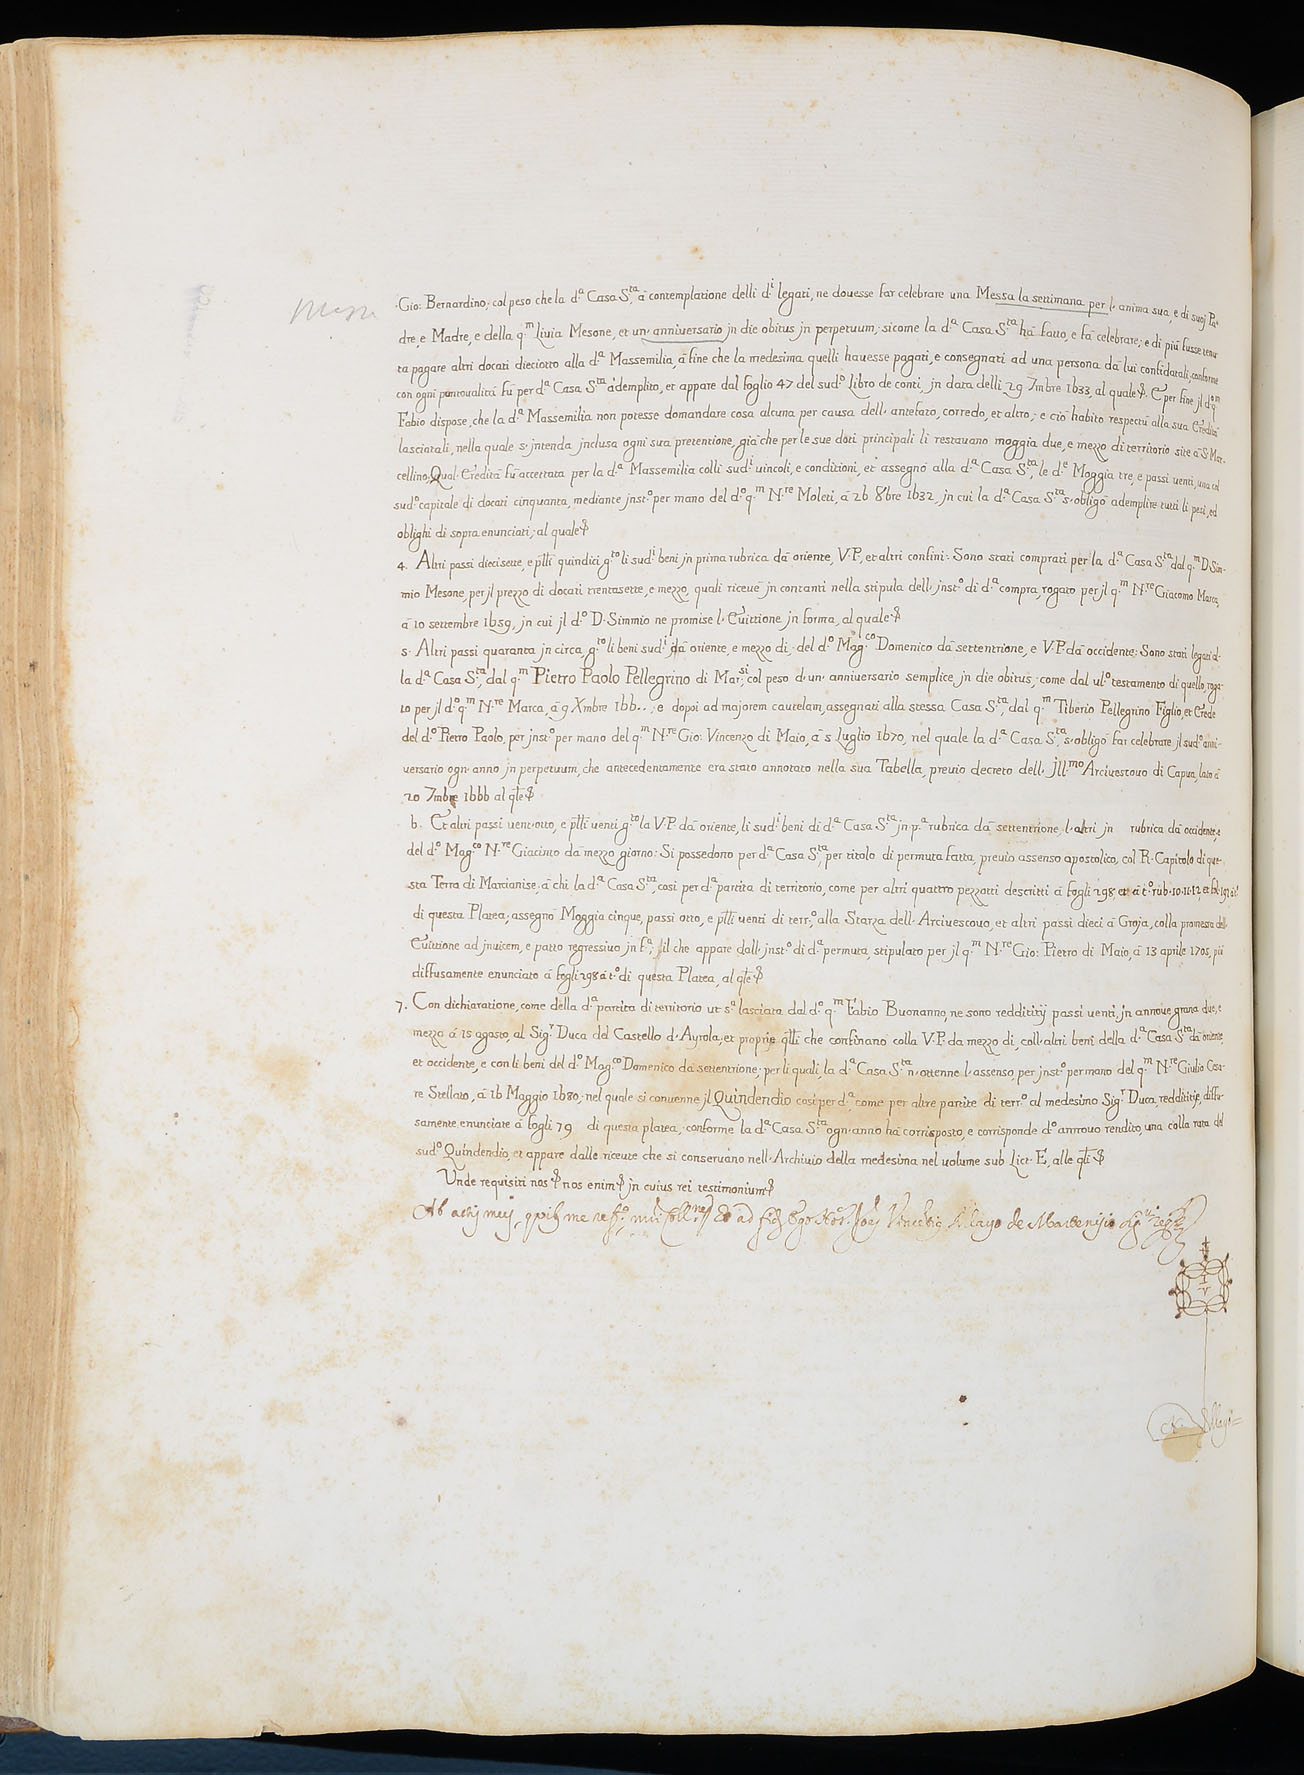 Messa
Gio: Bernardino; col peso che la d.ª Casa S.ta, à contemplatione delli d.i legati, ne douesse far celebrare una Messa la settimana per l'anima sua, e di suoj Pa-
dre, e Madre, e della q.m Liuia Mesone, et un' anniuersario jn die obitus jn perpetuum; sicome la d.ª Casa S.ta hà fatto, e fà celebrare; e di più fusse tenu-
ta pagare altri docati dieciotto alla d.ª Massemilia, à fine che la medesima quelli hauesse pagati, e consegnati ad una persona dà lui confidatali, conforme
con ogni puntoualità fù per d.ª Casa S.ta ademplito, et appare dal foglio 47 del sud.º Libro de conti, jn data delli 29 7mbre 1633, al quale. E per fine jl d.º q.m
Fabio dispose, che la d.ª Massemilia non potesse domandare cosa alcuna per causa dell' antefato, corredo, et altro; e ciò habito respectu alla sua Eredità
lasciatali, nella quale s'jntenda jnclusa ogni sua pretentione, già che per le sue doti principali li restauano moggia due, e mezzo di territorio site à S. Mar-
cellino; Qual Eredità fù accettata per la d.ª Massemilia colli sud.i uincoli, e conditioni, et assegnò alla d.ª Casa S.ta, le d.e Moggia tre, e passi uenti, una col
sud.º capitale di docati cinquanta, mediante jnst.º per mano del d.º q.m N.re Moleti, à 26 8bre 1632, jn cui la d.ª Casa S.ta s'obligò ademplire tutti li pesi, ed
oblighi di sopra enunciati; al quale
4. Altri passi diecisette, e p̄lli quindici g.to li sud.i beni jn prima rubrica dà oriente, V.P., et altri confini: Sono stati comprati per la d.ª Casa S.ta dal q.m D. Sim-
mio Mesone, per jl prezzo di docati trentasette, e mezzo, quali riceuè jn contanti nella stipula dell' jnst.º di d.ª compra, rogato per jl q.m N.re Giacomo Marca,
à 10 settembre 1659, jn cui jl d.º D. Simmio ne promise l'Euittione jn forma, al quale
5. Altri passi quaranta jn circa, g.to li beni sud.i dà oriente, e mezzo dì, del d.º Mag.co Domenico dà settentrione, e V.P. dà occidente: Sono stati legati d-
la d.ª Casa S.ta, dal q.m Pietro Paolo Pellegrino di Mar.si, col peso d'un' anniuersario semplice jn die obitus, come dal ul.º testamento di quello, roga-
to per jl d.º q.m N.re Marca, à 9 Xmbre 166..; e dopoi ad majorem cautelam, assegnati alla stessa Casa S.ta, dal q.m Tiberio Pellegrino Figlio, et Erede
del d.º Pietro Paolo, per jnst.º per mano del q.m N.re Gio: Vincenzo di Maio, à 5 Luglio 1670, nel quale la d.ª Casa S.ta, s'obligò far celebrare jl sud.º anni-
uersario ogn'anno jn perpetuum, che antecedentemente era stato annotato nella sua Tabella, preuio decreto dell' Jll.mo Arciuescouo di Capua, lato à
20 7mbre 1666 al q̄le
6. Et altri passi uent'otto, e p̄lli uenti g.to la V.P. dà oriente, li sud.i beni di d.ª Casa S.ta jn p.ª rubrica dà settentrione, l'altri jn rubrica dà occidente, e
del d.º Mag.co N.re Giacinto dà mezzo giorno: Si possedono per d.ª Casa S.ta, per titolo di permuta fatta, preuio assenso apostolico, col R. Capitolo di que-
sta Terra di Marcianise, à chi la d.ª Casa S.ta, cosi per d.ª partita di territorio, come per altri quattro pezzotti descritti à fogli 298, et à t.º rub. 10. 11. 12, et fol. 192 à t.º
di questa Platea, assegnò Moggia cinque, passi otto, e p̄lli uenti di terr.º, alla Starza dell' Arciuescouo, et altri passi dieci à Groja, colla promessa dell-
Euittione ad jnuicem, e patto regressiuo jn f.ª; jl che appare dall' jnst.º di d.ª permuta, stipulato per jl q.m N.re Gio: Pietro di Maio, à 13 aprile 1705, più
diffusamente enunciato à fogli 298 à t.º di questa Platea, al q̄le
7. Con dichiaratione, come della d.ª partita di territorio ut s.ª lasciata dal d.º q.m Fabio Buonanno, ne sono reddititij passi uenti, jn annoue grana due, e
mezzo à 15 agosto, al Sig.r Duca del Castello d'Ayrola, et proprie q̄lli che confinano colla V.P. da mezzo dì, coll'altri beni della d.ª Casa S.ta dà oriente,
et occidente, e con li beni del d.º Mag.co Domenico dà settentrione; per li quali, la d.ª Casa S.ta n'ottenne l'assenso, per jnst.º per mano del q.m N.re Giulio Cesa-
re Stellato, à 16 Maggio 1680, nel quale si conuenne jl Quindendio cosi per d.ª, come per altre partite di terr.º al medesimo Sig.r Duca, reddititije, diffu-
samente enunciate à fogli 79 di questa platea, conforme la d.ª Casa S.ta ogn'anno hà corrisposto, e corrisponde d.º annouo rendito, una colla rata del
sud.º Quindendio, et appare dalle riceute che si conseruano nell' Archiuio della medesima nel uolume sub Lict. E, alle q̄li
Unde requisiti nos nos enim jn cuius rei testimonium
Ab actis meis Ego Not.r de Marcenisio